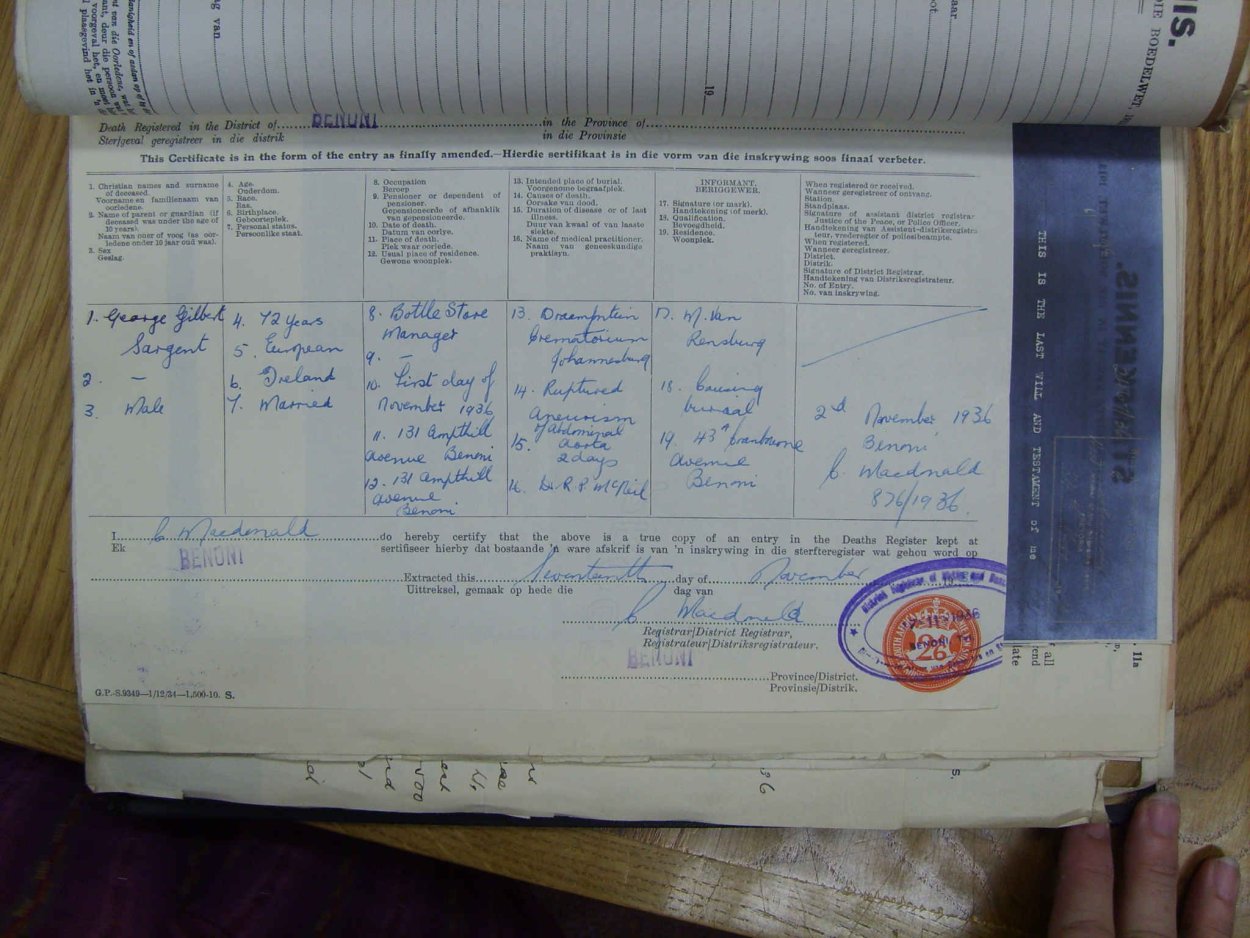 Death Registered in the District of BENONI in the Province of
Sterfgeval geregistreer in die distrik in die Provinsie
This Certificate is in the form of the entry as finally amended.—Hierdie sertifikaat is in die vorm van die inskrywing soos finaal verbeter.
1. Christian names and surname
of deceased.
Voornaam en familienaam van
oorledene.
2. Name of parent or guardian (if
deceased was under the age of
10 years).
Naam van ouer of voog (as oor-
ledene onder 10 jaar oud was).
3. Sex
Geslag.
4. Age.
Ouderdom.
5. Race.
Ras.
6. Birthplace.
Geboorteplek.
7. Personal status.
Persoonlike staat.
8. Occupation
Beroep
9. Pensioner or dependent of
pensioner.
Gepensioneerde of afhanklik
van gepensioneerde.
10. Date of death.
Datum van oorlye.
11. Place of death.
Plek waar oorlede.
12. Usual place of residence.
Gewone woonplek.
13. Intended place of burial.
Voorgenome begraafplek.
14. Causes of death.
Oorsake van dood.
15. Duration of disease or of last
illness.
Duur van kwaal of van laaste
siekte.
16. Name of medical practitioner.
Naam van geneeskundige
praktisyn.
INFORMANT.
BERIGGEWER.
17. Signature (or mark).
Handtekening (of merk).
18. Qualification.
Bevoegdheid.
19. Residence.
Woonplek.
When registered or received.
Wanneer geregistreer of ontvang.
Station.
Standplaas.
Signature of assistant district registrar
Justice of the Peace, or Police Officer.
Handtekening van Assistent-distriksregistra-
teur, vrederegter of polisiebeampte.
When registered.
Wanneer geregistreer.
District.
Distrik.
Signature of District Registrar.
Handtekening van Distriksregistrateur.
No. of Entry.
No. van inskrywing.
1. George Gilbert
Sargent
2. —
3. Male
4. 72 Years
5. European
6. Ireland
7. Married
8. Bottle Store
Manager
9. —
10. First day of
November 1936
11. 131 Ampthill
Avenue Benoni
12. 131 Ampthill
Avenue
Benoni
13. Braamfontein
Crematorium
Johannesburg
14. Ruptured
Aneurism
of Abdominal
Aorta
15. 2 days
16. Dr. R. P. McNeil
17. M. Van
Rensburg
18. Causing
burial
19. 43A Cranbourne
Avenue
Benoni
2nd November 1936
Benoni
C. Macdonald
876/1936.
I C. Macdonald do hereby certify that the above is a true copy of an entry in the Deaths Register kept at
Ek sertifiseer hierby dat bostaande 'n ware afskrif is van 'n inskrywing in die sterfteregister wat gehou word op
BENONI
Extracted this Seventeenth day of November
Uittreksel, gemaak op hede die dag van
C. Macdonald
Registrar/District Registrar,
Registrateur/Distriksregistrateur.
BENONI
Province/District.
Provinsie/Distrik.
G.P.-S.9349—1/12/34—1,500-10. S.
BENONI
2/6
THIS IS THE LAST WILL AND TESTAMENT of me